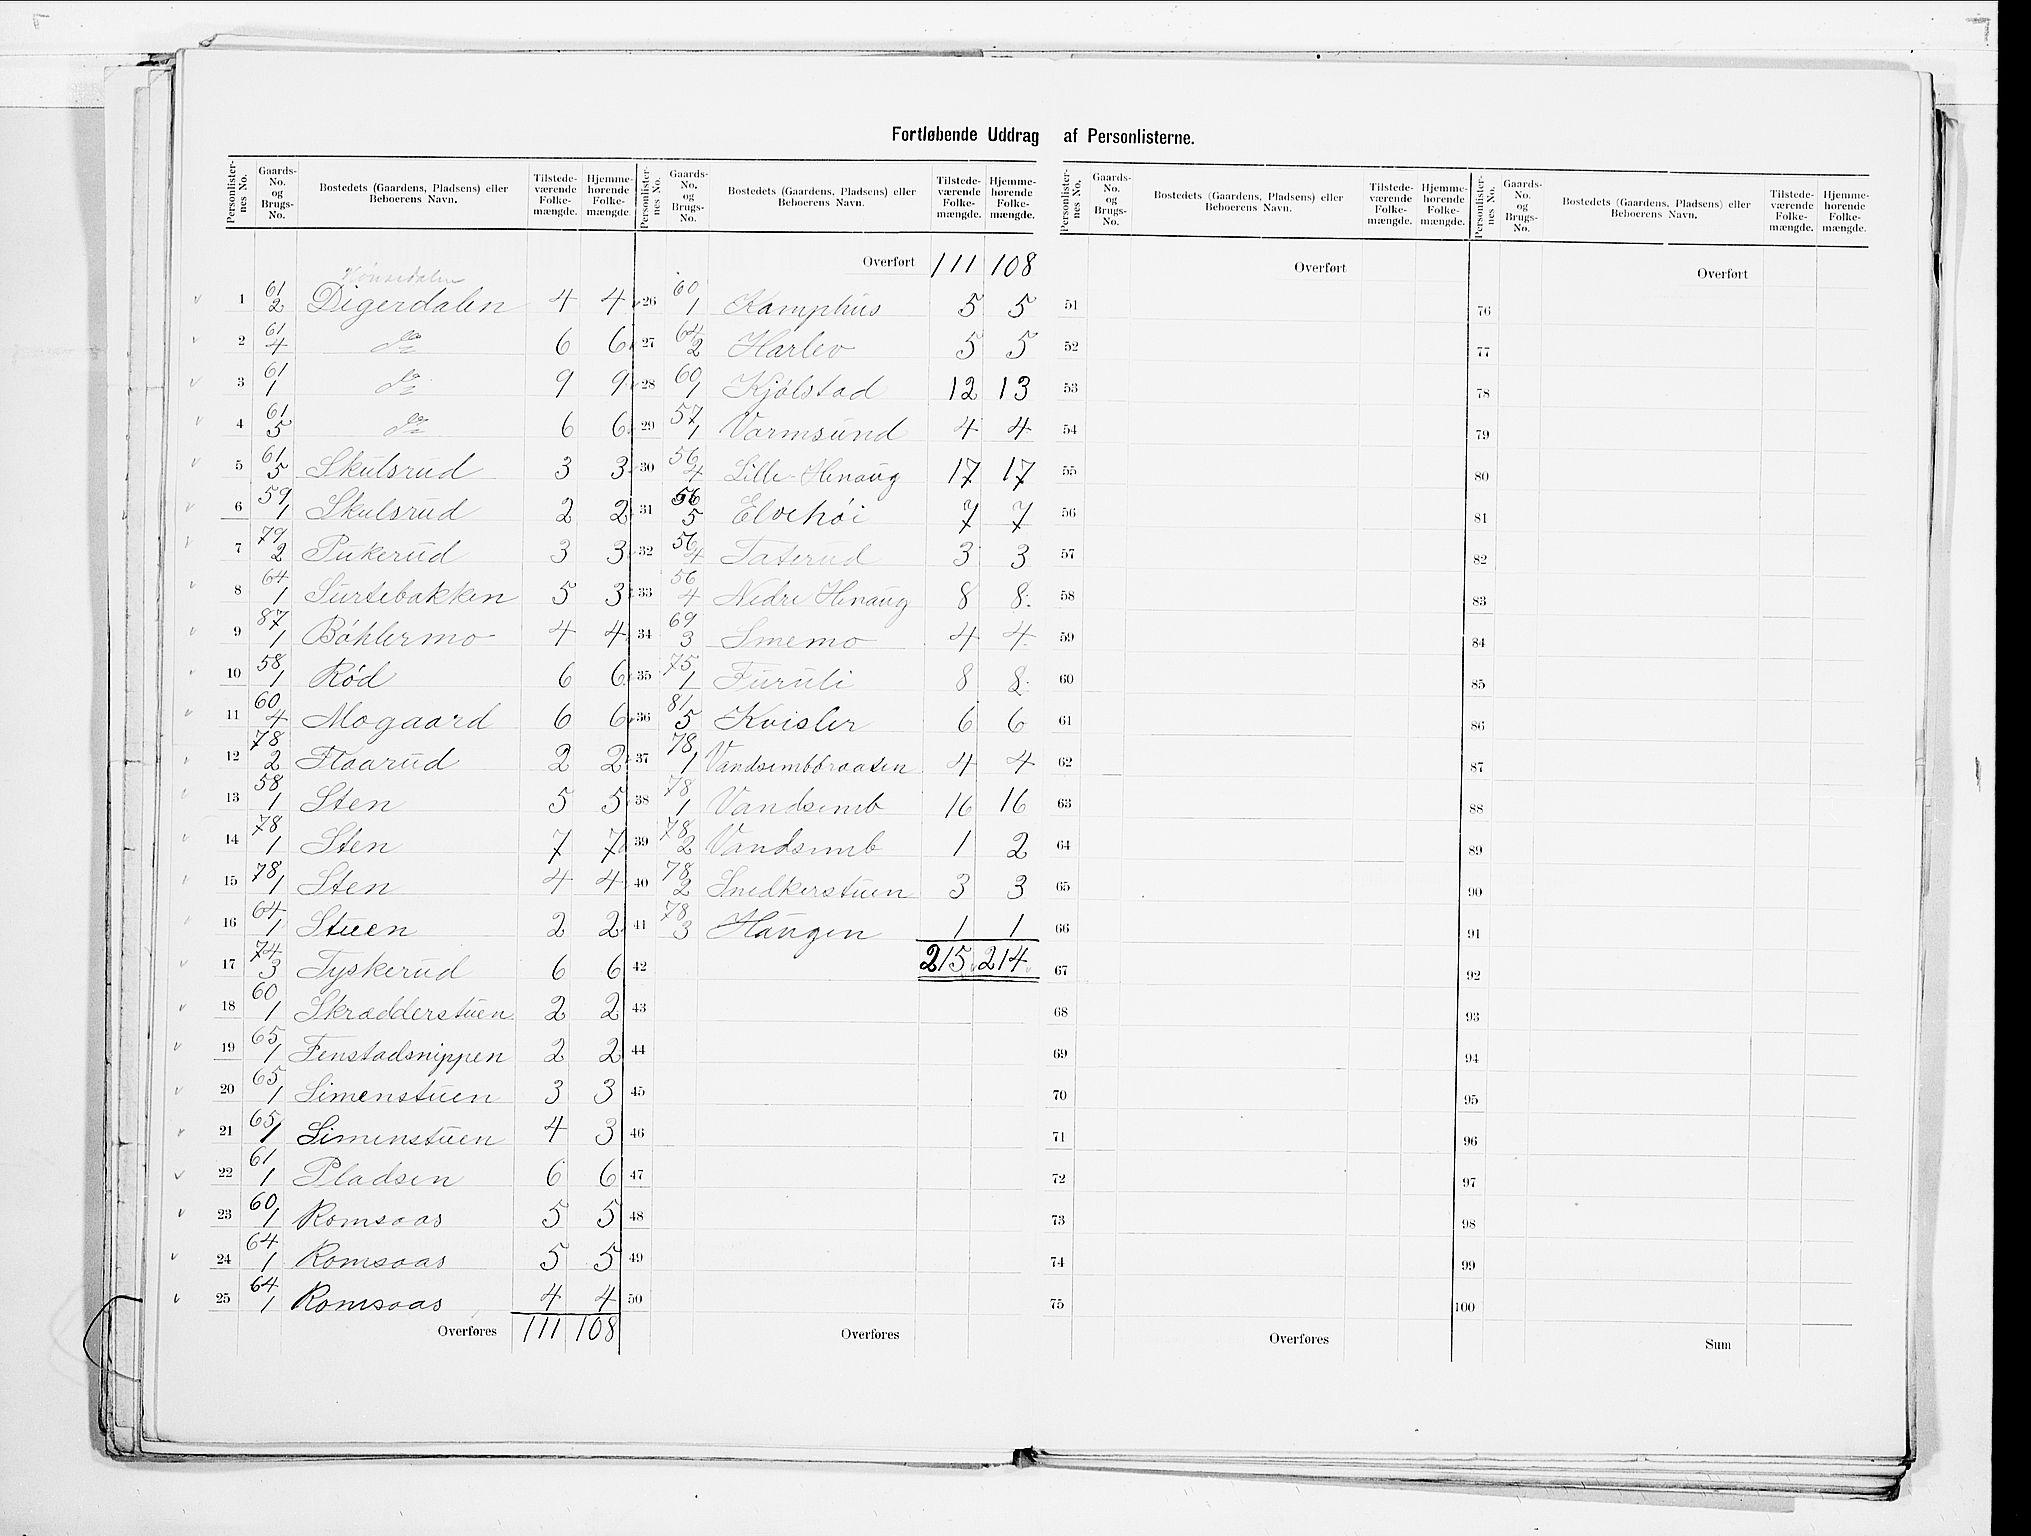 Fortløbende Uddrag af Personlisterne.
Personlister-nes No. | Gaards-No. og Brugs-No. | Bostedets (Gaardens, Pladsens) eller Beboerens Navn. | Tilstede-værende Folke-mængde. | Hjemme-hørende Folke-mængde.
Hønsedalen
1 61/2 Digerdalen 4 4
2 61/4 Do 6 6
3 61/1 Do 9 9
4 61/5 Do 6 6
5 61/5 Skulsrud 3 3
6 59/1 Skulsrud 2 2
7 79/2 Pukerud 3 3
8 64/1 Surtebakken 5 3
9 87/1 Bøhlermo 4 4
10 58/1 Rød 6 6
11 60/4 Mogaard 6 6
12 78/2 Flaarud 2 2
13 58/1 Sten 5 5
14 78/1 Sten 7 7
15 78/1 Sten 4 4
16 64/1 Stuen 2 2
17 74/3 Tyskerud 6 6
18 60/1 Skrædderstuen 2 2
19 65/1 Fenstadsnippen 2 2
20 65/1 Simenstuen 3 3
21 65/1 Simenstuen 4 3
22 61/1 Pladsen 6 6
23 60/1 Romsaas 5 5
24 64/1 Romsaas 5 5
25 64/1 Romsaas 4 4
Overføres 111 108
Personlister-nes No. | Gaards-No. og Brugs-No. | Bostedets (Gaardens, Pladsens) eller Beboerens Navn. | Tilstede-værende Folke-mængde. | Hjemme-hørende Folke-mængde.
Overført 111 108
26 60/1 Kamphus 5 5
27 64/2 Harlev 5 5
28 60/1 Kjølstad 12 13
29 57/1 Vormsund 4 4
30 56/4 Lille-Henaug 17 17
31 56/5 Elvehøi 7 7
32 56/4 Taterud 3 3
33 56/4 Nedre Henaug 8 8
34 69/3 Smemo 4 4
35 75/1 Furuli 8 8
36 81/5 Kvisler 6 6
37 78/1 Vandsembbraaten 4 4
38 78/1 Vandsemb 16 16
39 78/2 Vandsemb 1 2
40 78/2 Snedkerstuen 3 3
41 78/3 Haugen 1 1
42 215 214
43
44
45
46
47
48
49
50
Overføres
Personlister-nes No. | Gaards-No. og Brugs-No. | Bostedets (Gaardens, Pladsens) eller Beboerens Navn. | Tilstede-værende Folke-mængde. | Hjemme-hørende Folke-mængde.
Overført
51
52
53
54
55
56
57
58
59
60
61
62
63
64
65
66
67
68
69
70
71
72
73
74
75
Overføres
Personlister-nes No. | Gaards-No. og Brugs-No. | Bostedets (Gaardens, Pladsens) eller Beboerens Navn. | Tilstede-værende Folke-mængde. | Hjemme-hørende Folke-mængde.
Overført
76
77
78
79
80
81
82
83
84
85
86
87
88
89
90
91
92
93
94
95
96
97
98
99
100
Sum